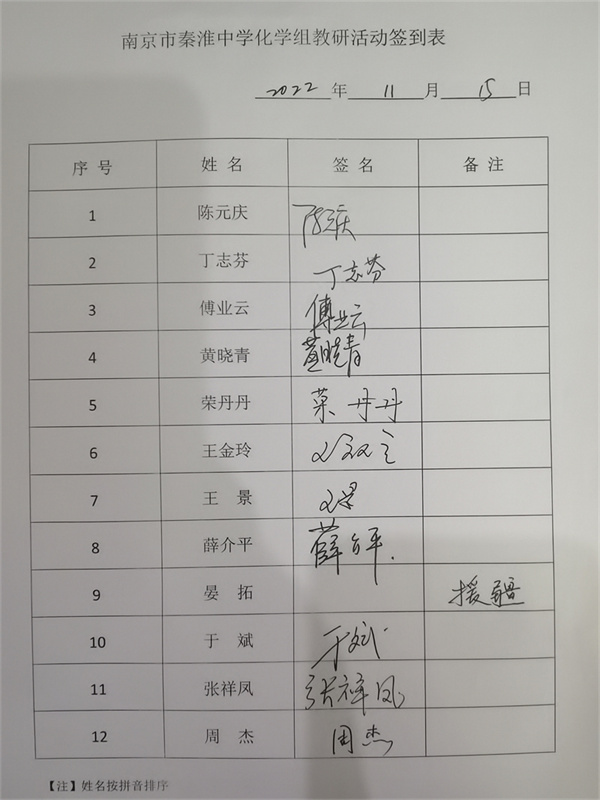 南京市秦淮中学化学组教研活动签到表
2022 年 11 月 15 日
序 号 姓 名 签 名 备 注
1 陈元庆 陈元庆
2 丁志芬 丁志芬
3 傅业云 傅业云
4 黄晓青 黄晓青
5 荣丹丹 荣丹丹
6 王金玲
7 王 景 王景
8 薛介平 薛介平
9 晏 拓 援疆
10 于 斌 于斌
11 张祥凤 张祥凤
12 周 杰 周杰
【注】姓名按拼音排序